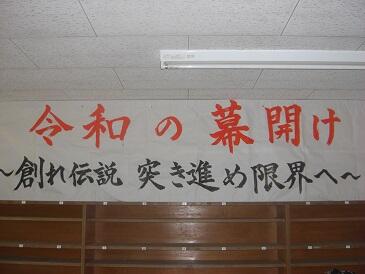 令和の幕開け
～創れ伝説 突き進め限界へ～